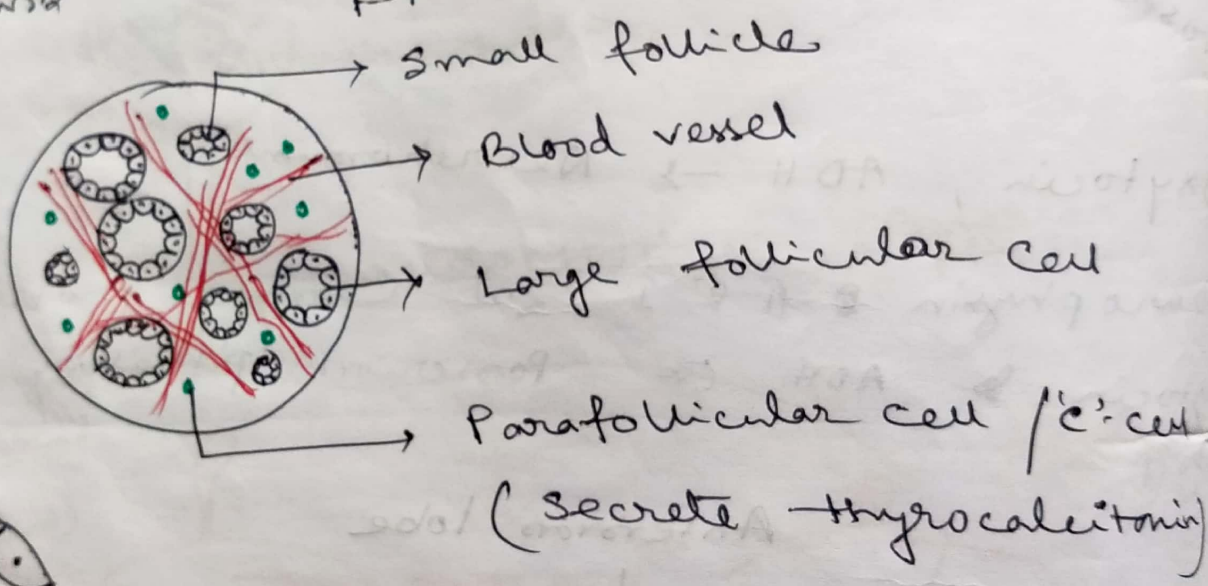 Small follicle
Blood vessel
Large follicular cell
Parafollicular cell / 'C' cell
(Secrete Thyrocalcitonin)